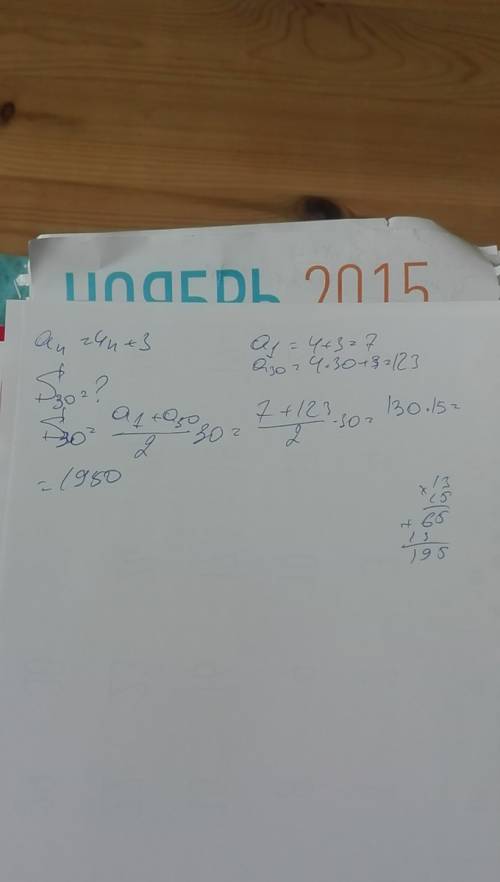 НОЯБРЬ 2015
aₙ = 4n + 3
a₁ = 4+3 = 7
a₃₀ = 4·30+3 = 123
S₃₀ = ?
S₃₀ = (a₁ + a₃₀)/2 · 30 = (7 + 123)/2 · 30 = 130·15 =
= 1950
× 13
15
+ 65
13
195